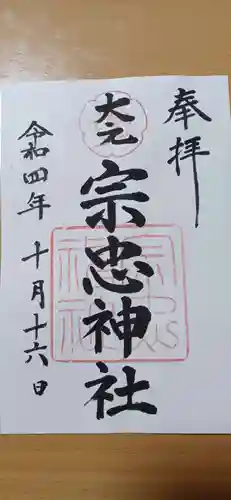 奉拝
大元
宗忠神社
令和四年 十月十六日
宗忠神社